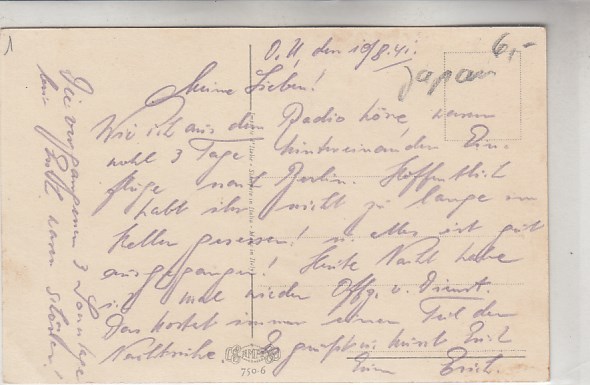 O. U. den 10/8.41.
Meine Lieben!
Wie ich aus dem Radio höre, waren
wohl 3 Tage hintereinander Ein-
flüge nach Berlin. Hoffentlich
habt ihr nicht zu lange im
Keller gesessen! u. alles ist gut
ausgegangen! Heute Nacht habe
ich mal wieder Offz. v. Dienst.
Das kostet immer einen Teil der
Nachtruhe. Es grüßt u. küsst Euch
Euer Erich.
Die vergangenen 3 Tage
kein waren
1
6,-
Japan
750-6